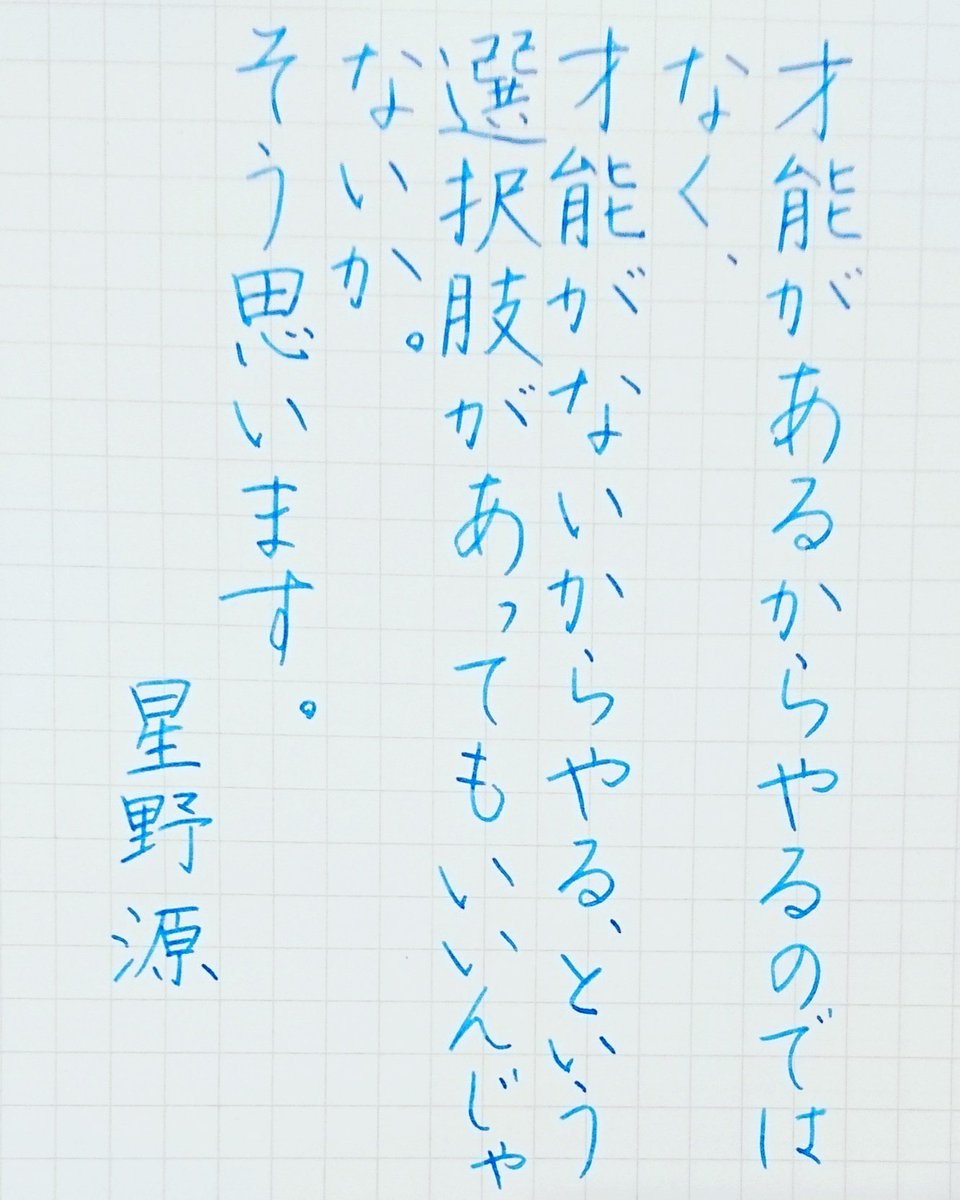 才能があるからやるのでは
なく、
才能がないからやる、という
選択肢があってもいいんじゃ
ないか。
そう思います。
星野源